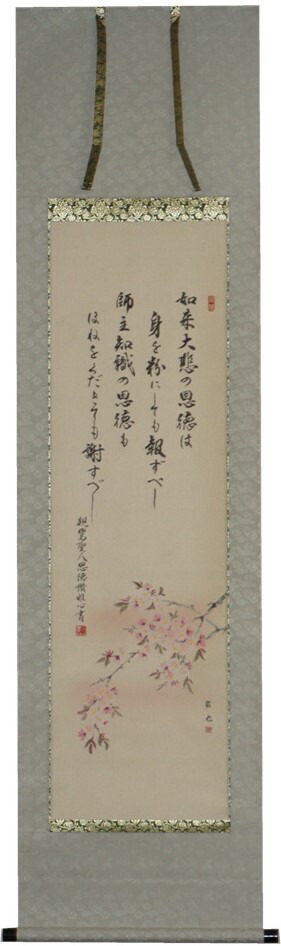 如来大悲の恩徳は
身を粉にしても報ずべし
師主知識の恩徳も
ほねをくだきても謝すべし
親鸞聖人恩徳讃